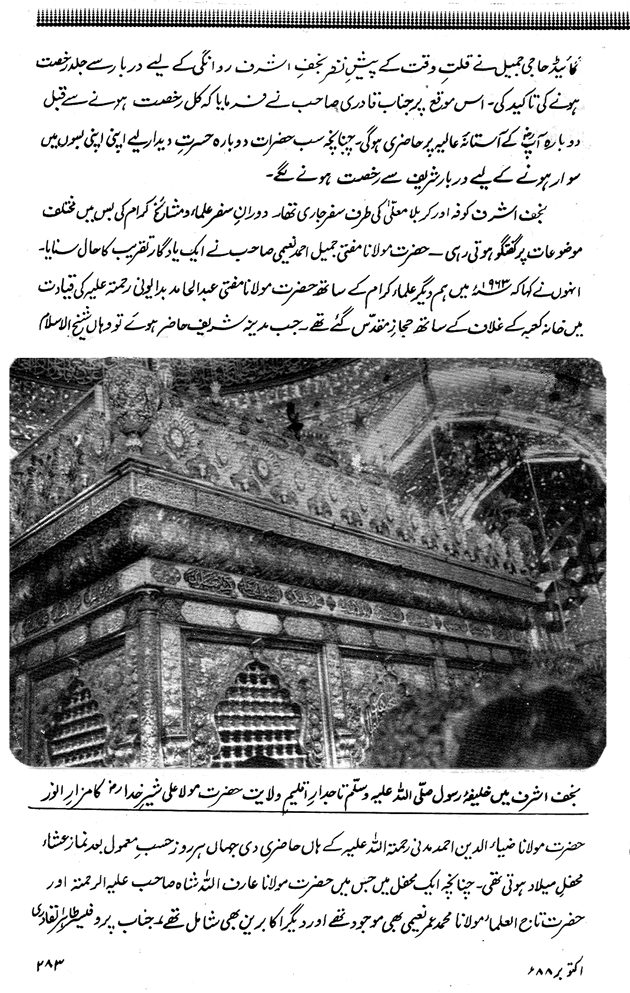 گائیڈ حاجی جمیل نے قلتِ وقت کے پیشِ نظر نجف اشرف روانگی کے لیے دربار سے جلد رخصت
ہونے کی تاکید کی۔ اس موقع پر جناب قادری صاحب نے فرمایا کہ کل رخصت ہونے سے قبل
دوبارہ آپؓ کے آستانۂ عالیہ پر حاضری ہوگی۔ چنانچہ سب حضرات دوبارہ حسرتِ دیدار لیے اپنی اپنی بسوں میں
سوار ہونے کے لیے دربار شریف سے رخصت ہونے لگے۔
نجف اشرف کوفہ اور کربلا معلّٰی کی طرف سفر جاری تھا۔ دورانِ سفر علماء و مشائخ کرام کی بس میں مختلف
موضوعات پر گفتگو ہوتی رہی۔ حضرت مولانا مفتی جمیل احمد نعیمی صاحب نے ایک یادگار تقریب کا حال سنایا۔
انہوں نے کہا کہ ۱۹۶۳ء میں ہم دیگر علماء کرام کے ساتھ حضرت مولانا مفتی عبدالحامد بدایونی رحمتہ علیہ کی قیادت
میں خانہ کعبہ کے غلاف کے ساتھ حجازِ مقدّس گئے تھے۔ جب مدینہ شریف حاضر ہوئے تو وہاں شیخ الاسلام
نجف اشرف میں خلیفۂ رسول صلّی اللہ علیہ وسلّم تاجدارِ اقلیمِ ولایت حضرت مولا علی شیرِ خداؓ کا مزارِ انور
حضرت مولانا ضیاء الدین احمد مدنی رحمتہ اللہ علیہ کے ہاں حاضری دی جہاں ہر روز حسبِ معمول بعد نماز عشاء
محفلِ میلاد ہوتی تھی۔ چنانچہ ایک محفل میں جس میں حضرت مولانا عارف اللہ شاہ صاحب علیہ الرحمتہ اور
حضرت تاج العلماء مولانا محمد عمر نعیمی بھی موجود تھے اور دیگر اکابرین بھی شامل تھے۔ جناب پروفیسر طاہر القادری
اکتوبر ۸۸ء
۲۸۳